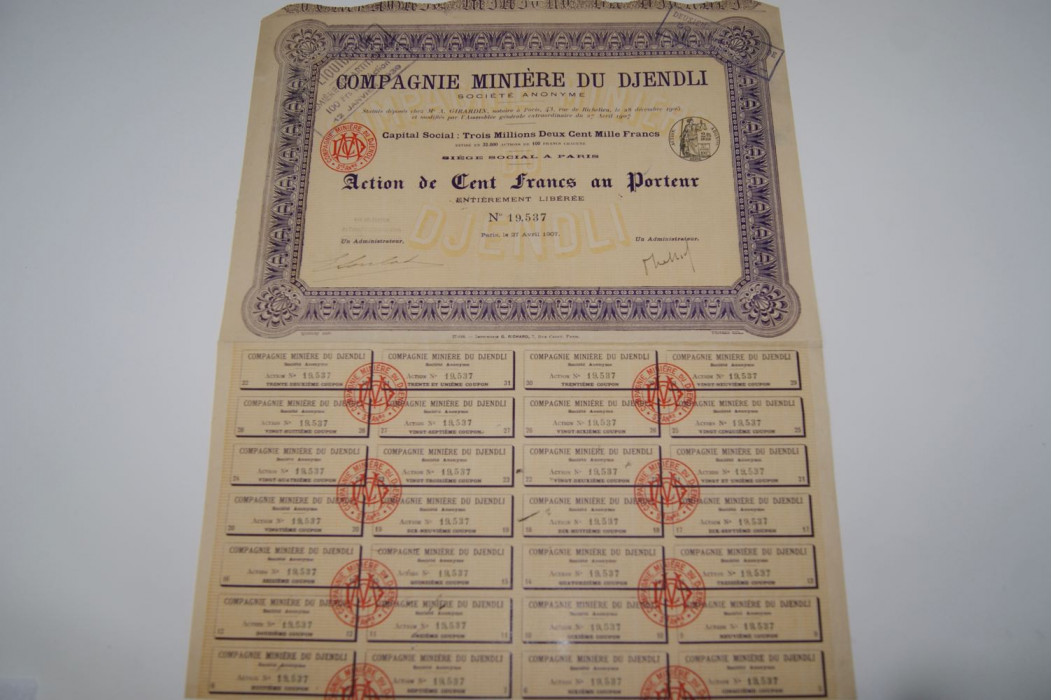 COMPAGNIE MINIÈRE DU DJENDLI
SOCIÉTÉ ANONYME
Statuts déposés chez Mᵉ A. GIRARDIN, notaire à Paris, 43, rue de Richelieu, le 28 décembre
et modifiés par l'Assemblée générale extraordinaire du 27 Avril 1907
Capital Social : Trois Millions Deux Cent Mille Francs
DIVISÉ EN 32.000 ACTIONS DE 100 FRANCS CHACUNE
SIÈGE SOCIAL A PARIS
Action de Cent Francs au Porteur
ENTIÈREMENT LIBÉRÉE
Nº 19,537
Paris, le 27 Avril 1907.
Un Administrateur, Un Administrateur,
DJENDLI
COMPAGNIE MINIÈRE DU DJENDLI COMPAGNIE MINIÈRE DU DJENDLI COMPAGNIE MINIÈRE DU DJENDLI COMPAGNIE MINIÈRE DU DJENDLI
Société Anonyme Société Anonyme Société Anonyme Société Anonyme
Action Nº 19,537 Action Nº 19,537 Action Nº 19,537 Action Nº 19,537
32 TRENTE-DEUXIÈME COUPON TRENTE ET UNIÈME COUPON 31 30 TRENTIÈME COUPON VINGT-NEUVIÈME COUPON 29
COMPAGNIE MINIÈRE DU DJENDLI COMPAGNIE MINIÈRE DU DJENDLI COMPAGNIE MINIÈRE DU DJENDLI COMPAGNIE MINIÈRE DU DJENDLI
Société Anonyme Société Anonyme Société Anonyme Société Anonyme
Action Nº 19,537 Action Nº 19,537 Action Nº 19,537 Action Nº 19,537
28 VINGT-HUITIÈME COUPON 28 27 VINGT-SEPTIÈME COUPON 27 26 VINGT-SIXIÈME COUPON 26 25 VINGT-CINQUIÈME COUPON 25
COMPAGNIE MINIÈRE DU DJENDLI COMPAGNIE MINIÈRE DU DJENDLI COMPAGNIE MINIÈRE DU DJENDLI COMPAGNIE MINIÈRE DU DJENDLI
Société Anonyme Société Anonyme Société Anonyme Société Anonyme
Action Nº 19,537 Action Nº 19,537 Action Nº 19,537 Action Nº 19,537
24 VINGT-QUATRIÈME COUPON VINGT-TROISIÈME COUPON 22 VINGT-DEUXIÈME COUPON VINGT ET UNIÈME COUPON 21
COMPAGNIE MINIÈRE DU DJENDLI COMPAGNIE MINIÈRE DU DJENDLI COMPAGNIE MINIÈRE DU DJENDLI COMPAGNIE MINIÈRE DU DJENDLI
Société Anonyme Société Anonyme Société Anonyme Société Anonyme
Action Nº 19,537 Action Nº 19,537 Action Nº 19,537 Action Nº 19,537
20 VINGTIÈME COUPON 20 19 DIX-NEUVIÈME COUPON 19 18 DIX-HUITIÈME COUPON 18 17 DIX-SEPTIÈME COUPON 17
COMPAGNIE MINIÈRE DU DJENDLI COMPAGNIE MINIÈRE DU DJENDLI COMPAGNIE MINIÈRE DU DJENDLI COMPAGNIE MINIÈRE DU DJENDLI
Société Anonyme Société Anonyme Société Anonyme Société Anonyme
Action Nº 19,537 Action Nº 19,537 Action Nº 19,537 Action Nº 19,537
16 SEIZIÈME COUPON QUINZIÈME COUPON 15 14 QUATORZIÈME COUPON TREIZIÈME COUPON 13
COMPAGNIE MINIÈRE DU DJENDLI COMPAGNIE MINIÈRE DU DJENDLI COMPAGNIE MINIÈRE DU DJENDLI COMPAGNIE MINIÈRE DU DJENDLI
Société Anonyme Société Anonyme Société Anonyme Société Anonyme
Action Nº 19,537 Action Nº 19,537 Action Nº 19,537 Action Nº 19,537
12 DOUZIÈME COUPON 12 11 ONZIÈME COUPON 11 10 DIXIÈME COUPON 10 9 NEUVIÈME COUPON 9
COMPAGNIE MINIÈRE DU DJENDLI COMPAGNIE MINIÈRE DU DJENDLI COMPAGNIE MINIÈRE DU DJENDLI COMPAGNIE MINIÈRE DU DJENDLI
Société Anonyme Société Anonyme Société Anonyme Société Anonyme
Action Nº 19,537 Action Nº 19,537 Action Nº 19,537 Action Nº 19,537
8 HUITIÈME COUPON SEPTIÈME COUPON 7 6 SIXIÈME COUPON CINQUIÈME COUPON 5